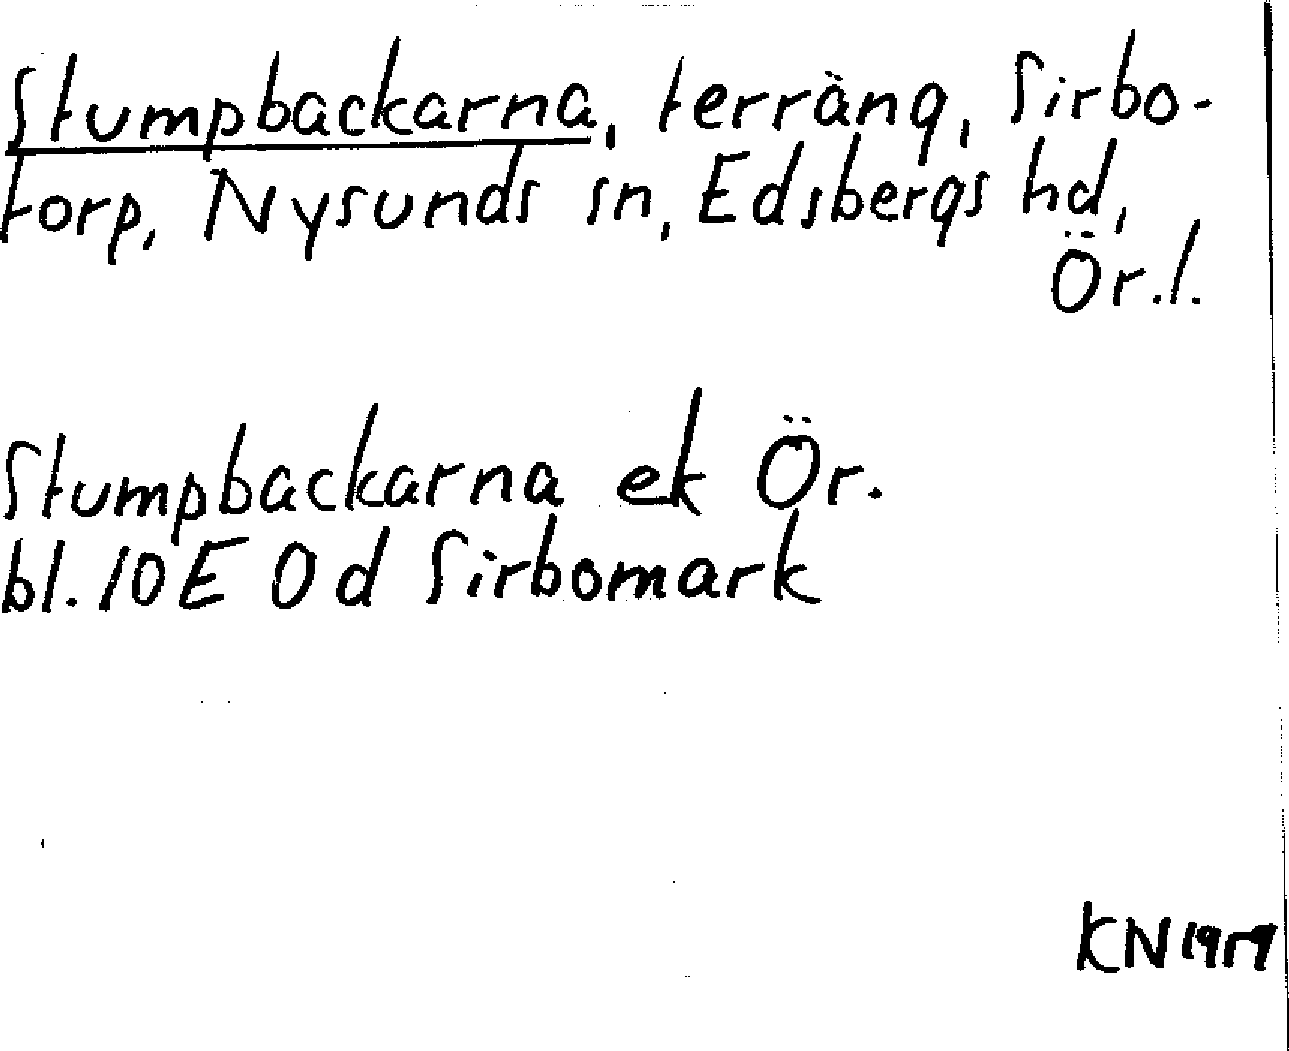 Stumpbackarna, terräng, Sirbo-
torp, Nysunds sn, Edsbergs hd,
Ör.l.
Stumpbackarna ek Ör.
bl. 10E 0d Sirbomark
KN 1959